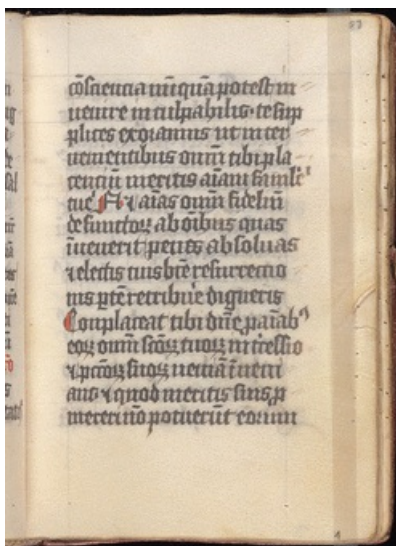 cōsciencia nūquā potest in
uenire inculpabilis · te sup
plices exoramus ut inter
uenientibus omniū tibi pla
cenciū meritis aīam famule
tue N · ⁊ aīas omniū fideliū
defunctoꝝ ab oībus quas
īuenerit penes absoluas
⁊ electis tuis btē resurrectio
nis ptē retribuē digneris
Conplaceat tibi dnē p aīabꝰ
eoꝝ omniū scōꝝ tuoꝝ intcessio
⁊ pccōꝝ suoꝝ ueniā īueni
ant ⁊ quod meritis suis p
mereri nō potuerūt eorum